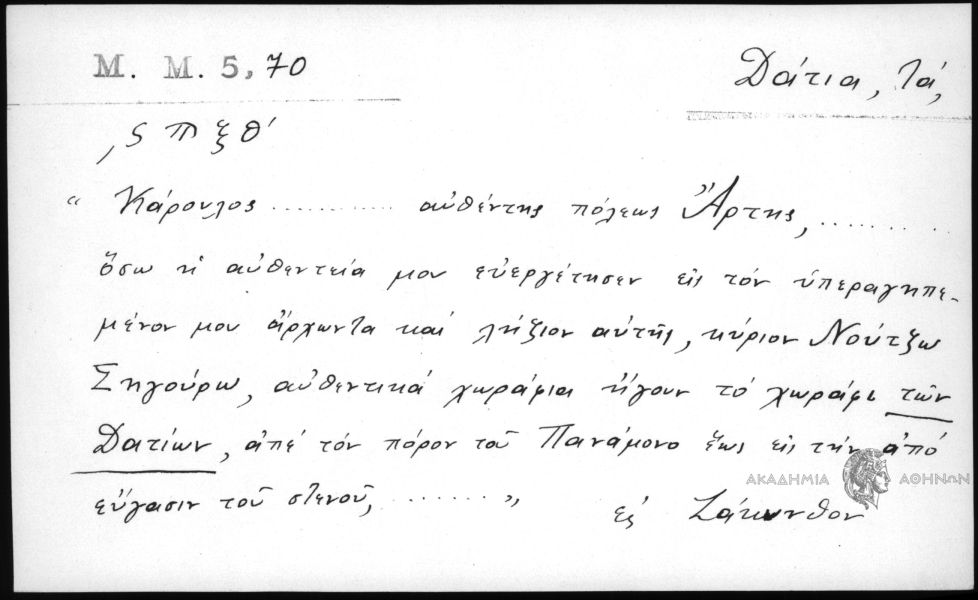 Μ. Μ. 5, 70
Δάτια, τά,
͵ϛ π ξ θ΄
“ Κάρουλος .......... αὐθέντης πόλεως Ἄρτης, ..........
ὅσω ἡ αὐθεντεία μου εὐεργέτησεν εἰς τόν ὑπεραγηπε-
μένον μου ἄρχωντα καί λήζιον αὐτῆς, κύριον Νούτζω
Σηγούρω, αὐθεντικά χωράφια ἤγουν τό χωράφι τῶν
Δατίων, ἀπέ τόν πόρον τοῦ Πανάμονο ἕως εἰς τήν ἀπό
εὔγασιν τοῦ στενοῦ, ........ ”
ἐς Ζάκυνθον
ΑΚΑΔΗΜΙΑ ΑΘΗΝΩΝ